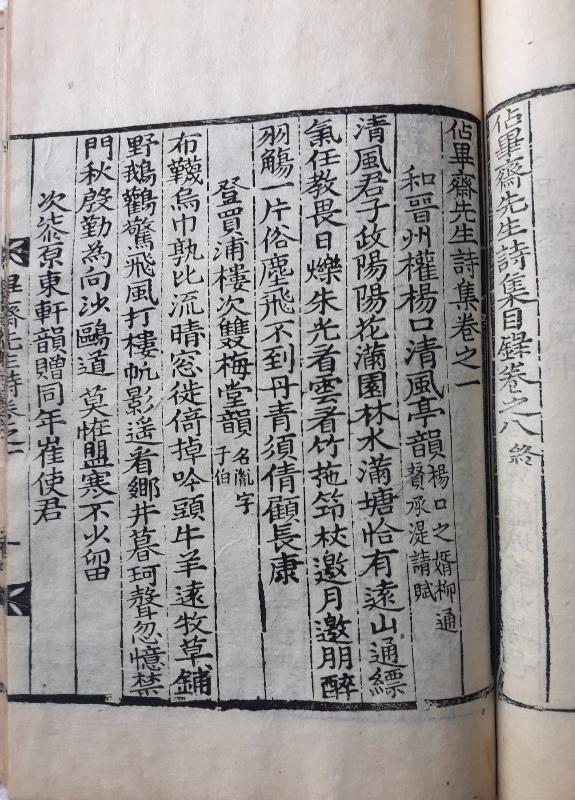 佔畢齋先生詩集目錄卷之八 終
佔畢齋先生詩集卷之一
和晉州權楊口清風亭韻 楊口之婿柳通
賛承湜請賦
清風君子政陽陽花滿園林水滿塘恰有遠山通縹
氣任教畏日爍朱光看雲看竹拖筇杖邀月邀朋醉
羽觴一片俗塵飛不到丹青須倩顧長康
登買浦樓次雙梅堂韻 名胤字
子伯
布韈烏巾孰比流晴窓徙倚掉吟頭牛羊遠牧草鋪
野鵝鸛驚飛風打樓帆影遥看鄉井暮珂聲忽憶禁
門秋慇勤為向沙鷗道莫恠盟寒不少留
次柒原東軒韻贈同年崔使君
畢齋先生詩卷之一